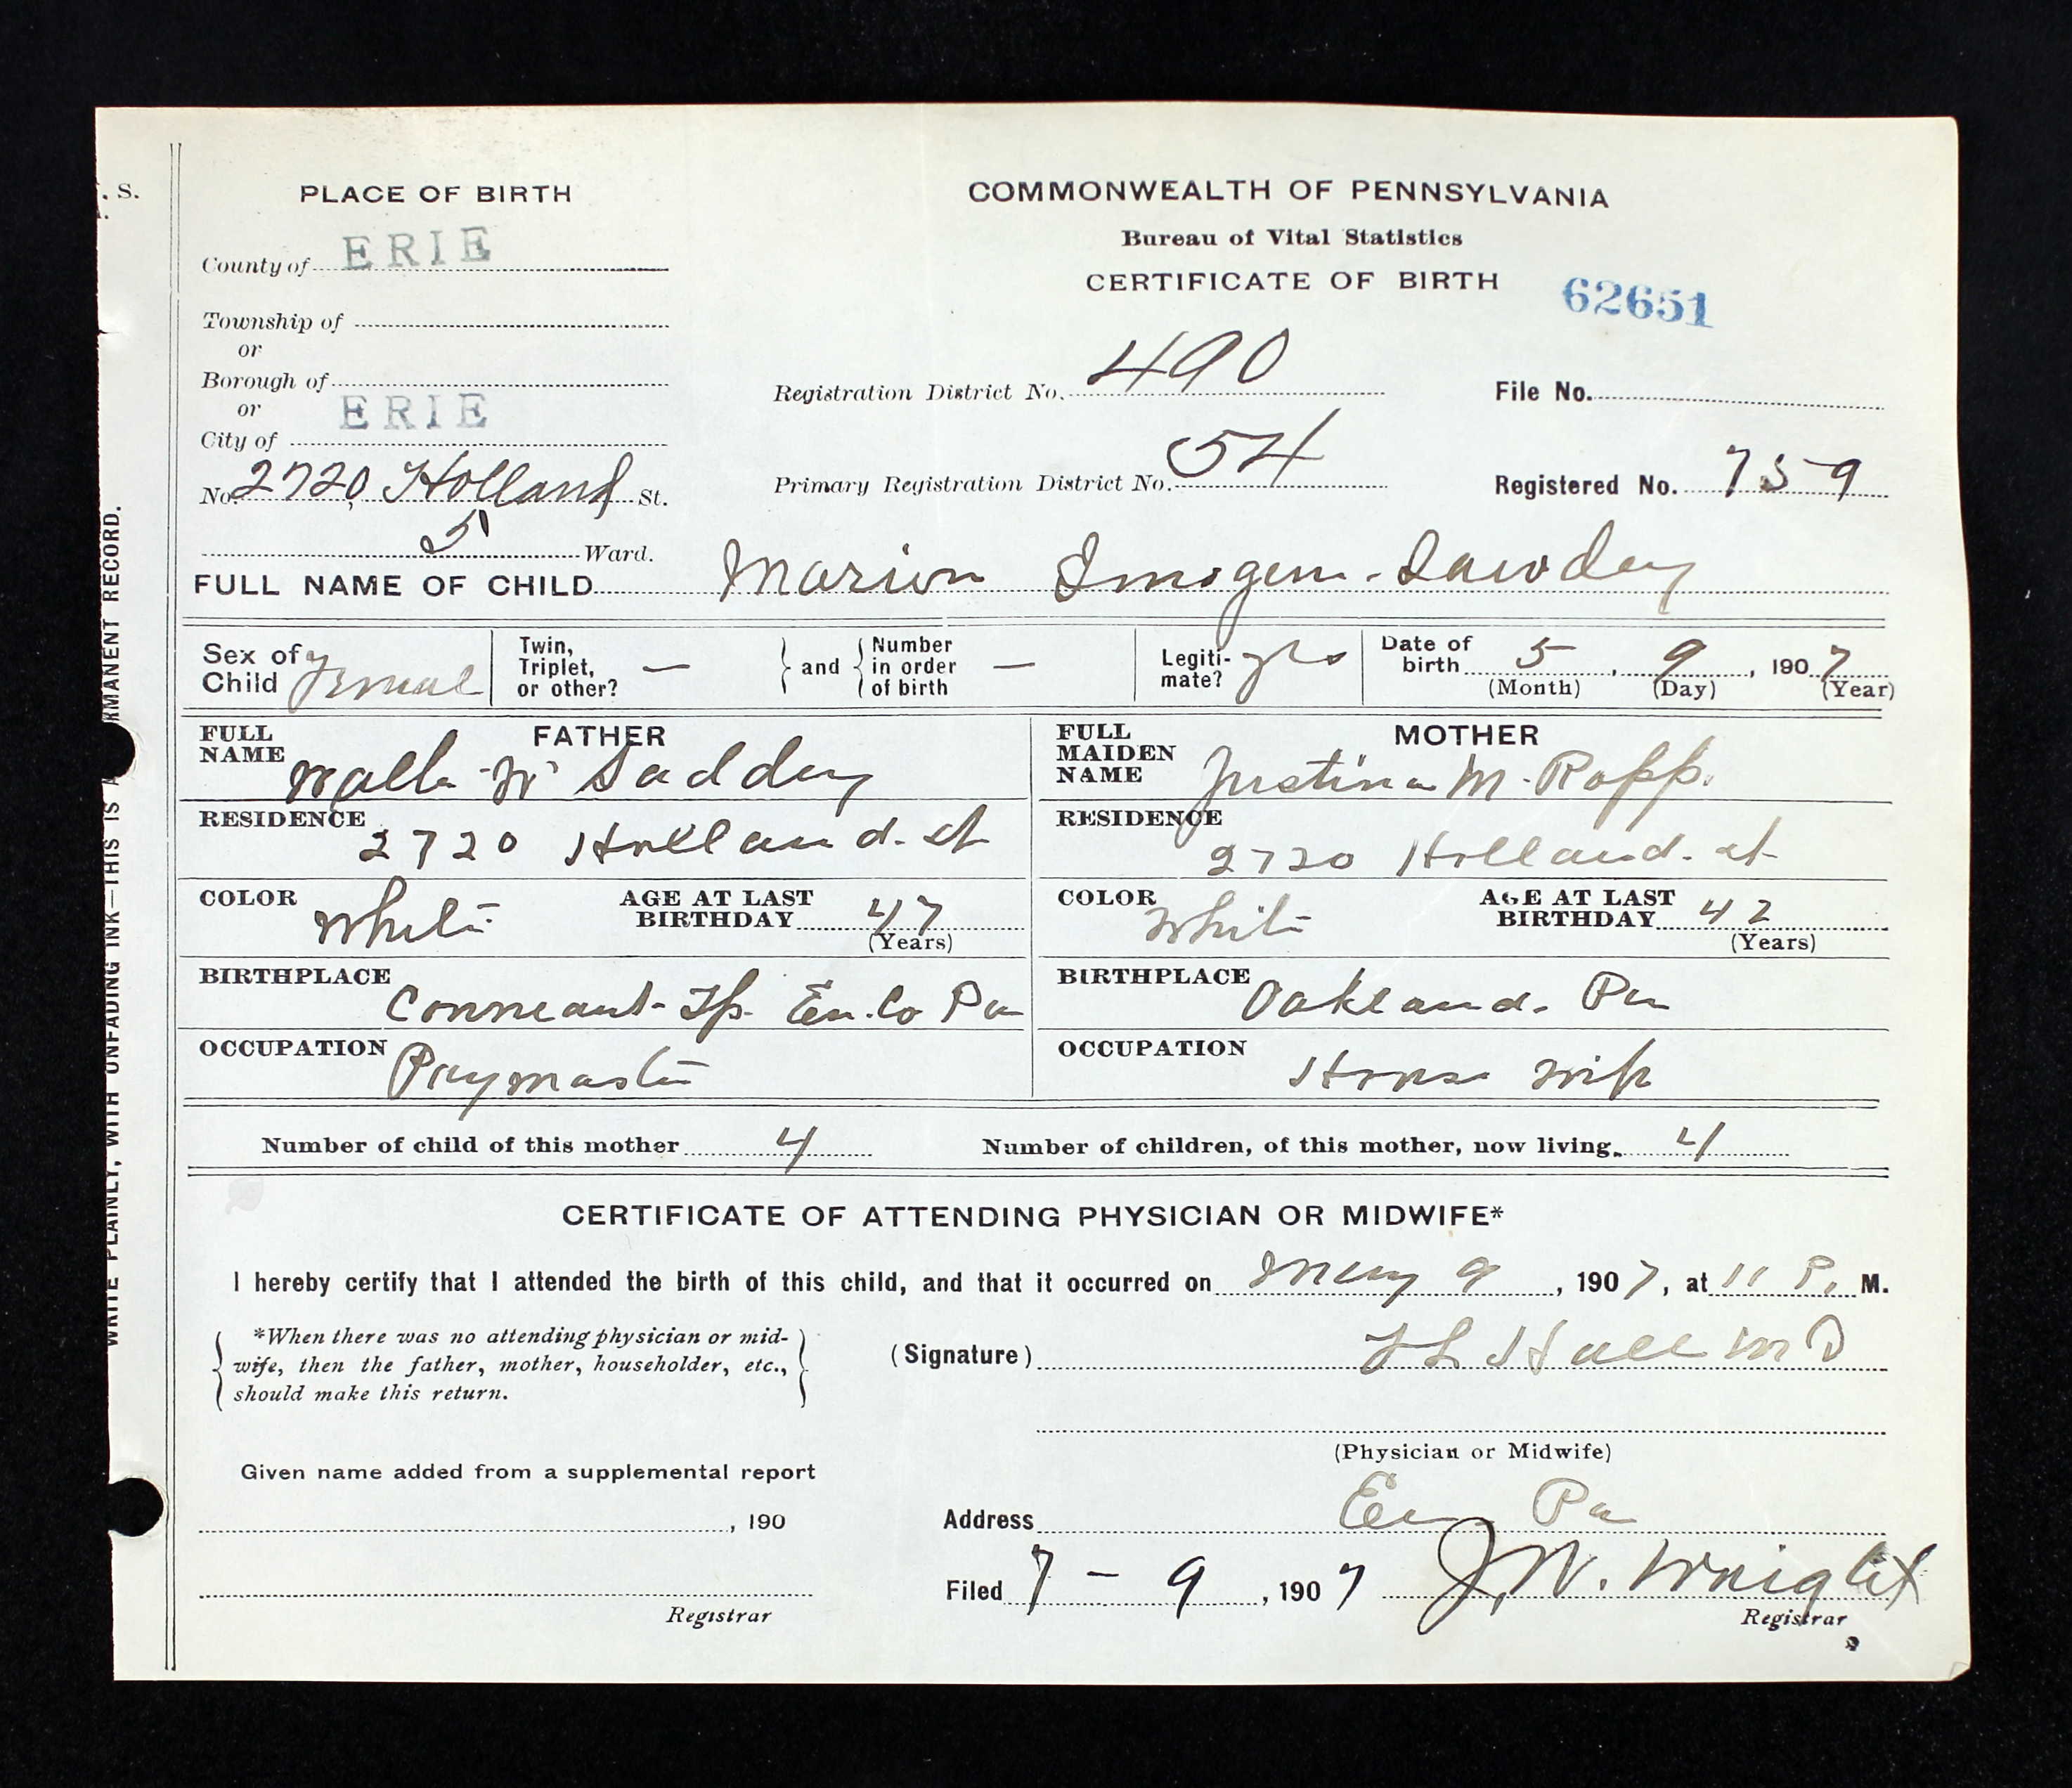 . S.
PLACE OF BIRTH
COMMONWEALTH OF PENNSYLVANIA
Bureau of Vital Statistics
CERTIFICATE OF BIRTH
62651
County of ERIE
Township of
or
Borough of
or
City of ERIE
No. 2720, Holland St.
5 Ward.
Registration District No. 490
File No.
Primary Registration District No. 54
Registered No. 759
FULL NAME OF CHILD Marion Imogene
Sex of Child Female
Twin, Triplet, or other? —
and
Number in order of birth —
Legitimate? yes
Date of birth 5, 9, 1907
(Month) (Day) (Year)
FATHER
FULL NAME W
RESIDENCE 2720 Holland. st
COLOR White
AGE AT LAST BIRTHDAY 47
(Years)
BIRTHPLACE Conneaut Tp. Co Pa
OCCUPATION Paymaster
MOTHER
FULL MAIDEN NAME Justina M. Ropp.
RESIDENCE 2720 Holland. st
COLOR White
AGE AT LAST BIRTHDAY 42
(Years)
BIRTHPLACE Oakland. Pa
OCCUPATION House wife
Number of child of this mother 4
Number of children, of this mother, now living 4
CERTIFICATE OF ATTENDING PHYSICIAN OR MIDWIFE*
I hereby certify that I attended the birth of this child, and that it occurred on May 9, 1907, at 11 P. M.
*When there was no attending physician or mid-
wife, then the father, mother, householder, etc.,
should make this return.
(Signature) Hall MD
(Physician or Midwife)
Given name added from a supplemental report
, 190
Registrar
Address Pa
Filed 7 - 9, 1907 J. W. Wright
Registrar
WRITE PLAINLY, WITH UNFADING INK—THIS IS A RMANENT RECORD.